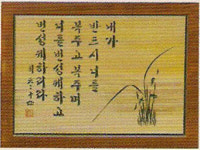 내가
반드시 너를
복주고 복주며
너를 번성케 하고
번성케 하리라